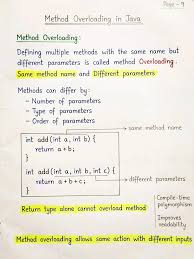 Page - 9
Method Overloading in Java
Method Overloading :
Defining multiple methods with the same name but
different parameters is called method Overloading.
Same method name and Different parameters
Methods can differ by :
- Number of parameters
- Type of parameters
- Order of parameters
same method name
int add (int a, int b) {
return a + b ;
}
int add (int a, int b, int c) {
return a + b + c ;
}
different parameters
Compile-time
polymorphism
Improves
readability
Return type alone cannot overload method
Method overloading allows same action with different inputs